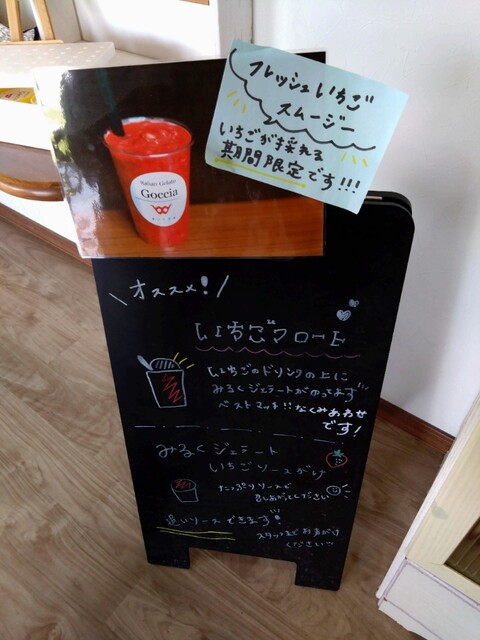 フレッシュいちご
スムージー
いちごが採れる
期間限定です!!!
Italian Gelato
Goccia
オススメ!
いちごフロート
いちごのドリンクの上に
みるくジェラートがのってます
ベストマッチ!!なくみあわせ
です!
みるくジェラート
いちごソースがけ
たっぷりソースで
召しあがってください
追いソースできます!
スタッフまでお声がけ
ください